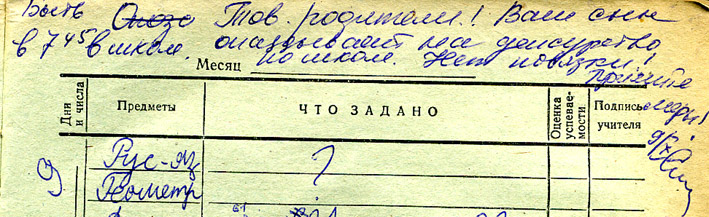 Быть Опозд Тов. родители! Ваш сын
в 7⁴⁵ в школе. опаздывает на дежурство
по школе. Нет повязки!
Примите меры!
9/X
Месяц
Дни и числа Предметы ЧТО ЗАДАНО Оценка успевае- мости Подпись учителя
9 Рус-яз ?
Геометр